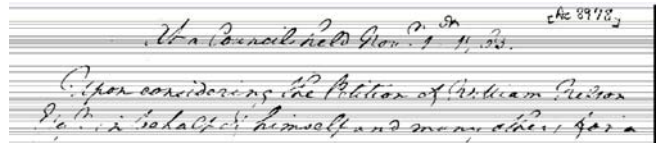 [Ac 8978]
At a Council held Nov.r
Upon considering the Petition of William Nelson
Esq.r in behalf of himself and many others for a